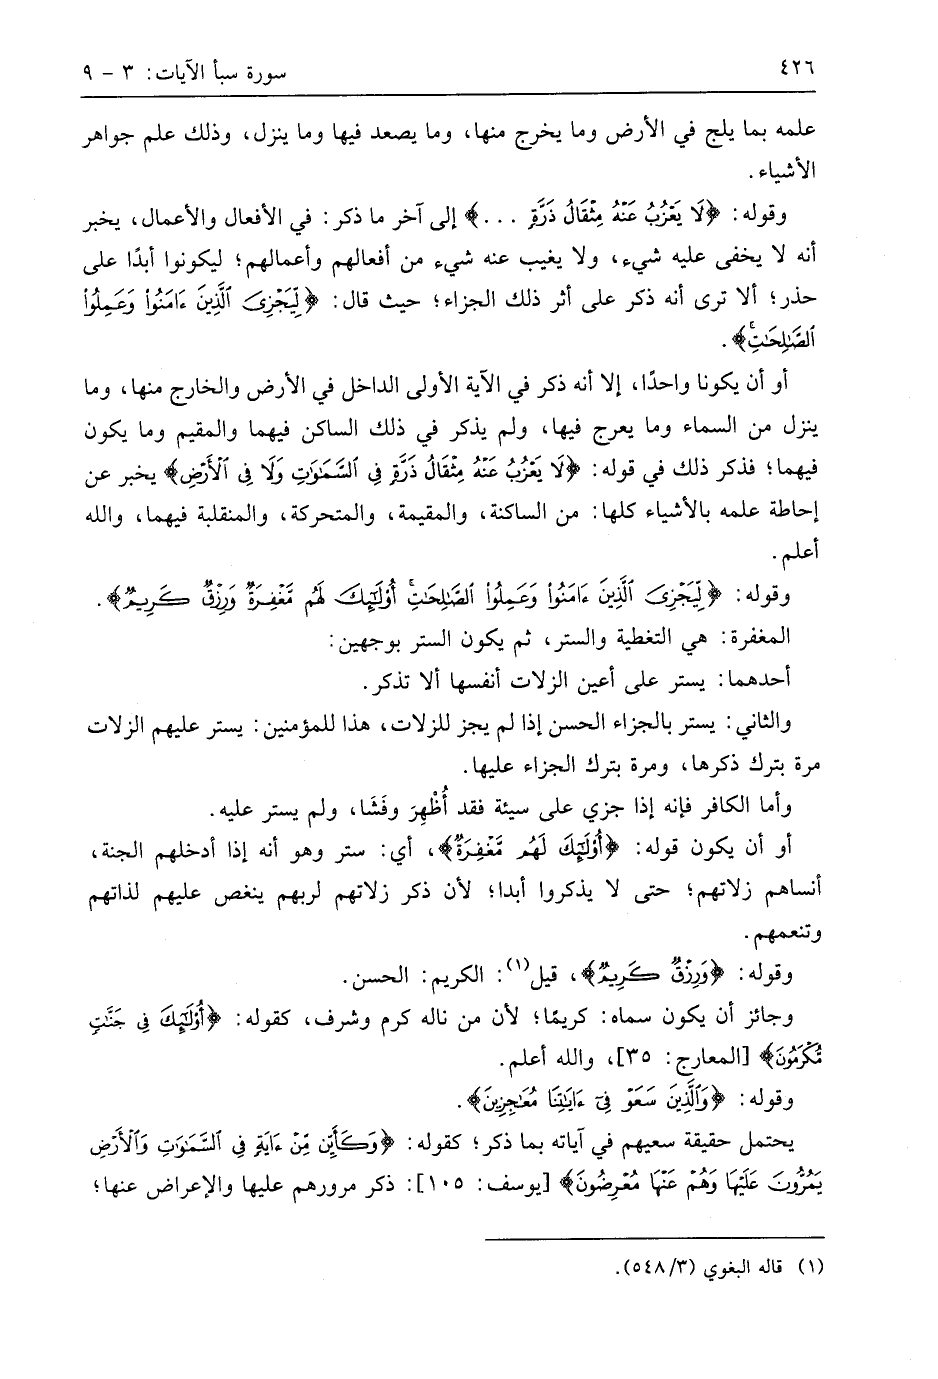 ٤٢٦
سورة سبأ الآيات: ٣ - ٩
علمه بما يلج في الأرض وما يخرج منها، وما يصعد فيها وما ينزل، وذلك علم جواهر
الأشياء.
وقوله: ﴿لَا يَعْزُبُ عَنْهُ مِثْقَالُ ذَرَّةٍ ...﴾ إلى آخر ما ذكر: في الأفعال والأعمال، يخبر
أنه لا يخفى عليه شيء، ولا يغيب عنه شيء من أفعالهم وأعمالهم؛ ليكونوا أبدًا على
حذر؛ ألا ترى أنه ذكر على أثر ذلك الجزاء؛ حيث قال: ﴿لِّيَجْزِىَ ٱلَّذِينَ ءَامَنُوا۟ وَعَمِلُوا۟
ٱلصَّٰلِحَٰتِۚ﴾.
أو أن يكونا واحدًا، إلا أنه ذكر في الآية الأولى الداخل في الأرض والخارج منها، وما
ينزل من السماء وما يعرج فيها، ولم يذكر في ذلك الساكن فيهما والمقيم وما يكون
فيهما؛ فذكر ذلك في قوله: ﴿لَا يَعْزُبُ عَنْهُ مِثْقَالُ ذَرَّةٍ فِى ٱلسَّمَٰوَٰتِ وَلَا فِى ٱلْأَرْضِ﴾ يخبر عن
إحاطة علمه بالأشياء كلها: من الساكنة، والمقيمة، والمتحركة، والمنقلبة فيهما، والله
أعلم.
وقوله: ﴿لِّيَجْزِىَ ٱلَّذِينَ ءَامَنُوا۟ وَعَمِلُوا۟ ٱلصَّٰلِحَٰتِۚ أُو۟لَٰٓئِكَ لَهُم مَّغْفِرَةٌ وَرِزْقٌ كَرِيمٌ﴾.
المغفرة: هي التغطية والستر، ثم يكون الستر بوجهين:
أحدهما: يستر على أعين الزلات أنفسها ألا تذكر.
والثاني: يستر بالجزاء الحسن إذا لم يجز للزلات، هذا للمؤمنين: يستر عليهم الزلات
مرة بترك ذكرها، ومرة بترك الجزاء عليها.
وأما الكافر فإنه إذا جزي على سيئة فقد أُظْهِرَ وفَشَا، ولم يستر عليه.
أو أن يكون قوله: ﴿أُو۟لَٰٓئِكَ لَهُم مَّغْفِرَةٌ﴾، أي: ستر وهو أنه إذا أدخلهم الجنة،
أنساهم زلاتهم؛ حتى لا يذكروا أبدا؛ لأن ذكر زلاتهم لربهم ينغص عليهم لذاتهم
وتنعمهم.
وقوله: ﴿وَرِزْقٌ كَرِيمٌ﴾، قيل(١): الكريم: الحسن.
وجائز أن يكون سماه: كريمًا؛ لأن من ناله كرم وشرف، كقوله: ﴿أُو۟لَٰٓئِكَ فِى جَنَّٰتٍ
مُّكْرَمُونَ﴾ [المعارج: ٣٥]، والله أعلم.
وقوله: ﴿وَٱلَّذِينَ سَعَوْ فِىٓ ءَايَٰتِنَا مُعَٰجِزِينَ﴾.
يحتمل حقيقة سعيهم في آياته بما ذكر؛ كقوله: ﴿وَكَأَيِّن مِّنْ ءَايَةٍ فِى ٱلسَّمَٰوَٰتِ وَٱلْأَرْضِ
يَمُرُّونَ عَلَيْهَا وَهُمْ عَنْهَا مُعْرِضُونَ﴾ [يوسف: ١٠٥]: ذكر مرورهم عليها والإعراض عنها؛
(١) قاله البغوي (٥٤٨/٣).